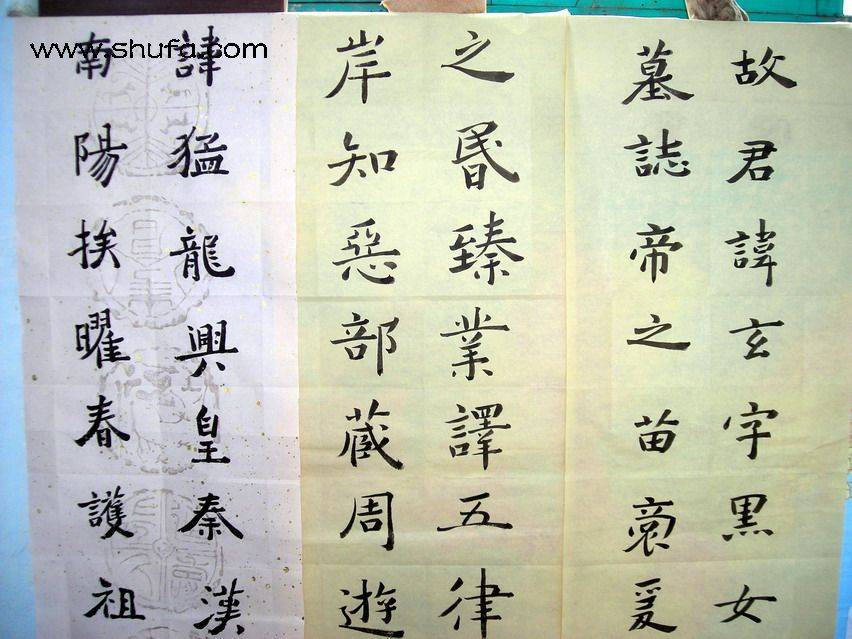 www.shufa.com
故君諱玄字黑女
墓誌帝之苗裔爰
之昬臻業譯五律
岸知惡部蔵周遊
諱猛龍興皇秦漢
南陽挨曜春護祖